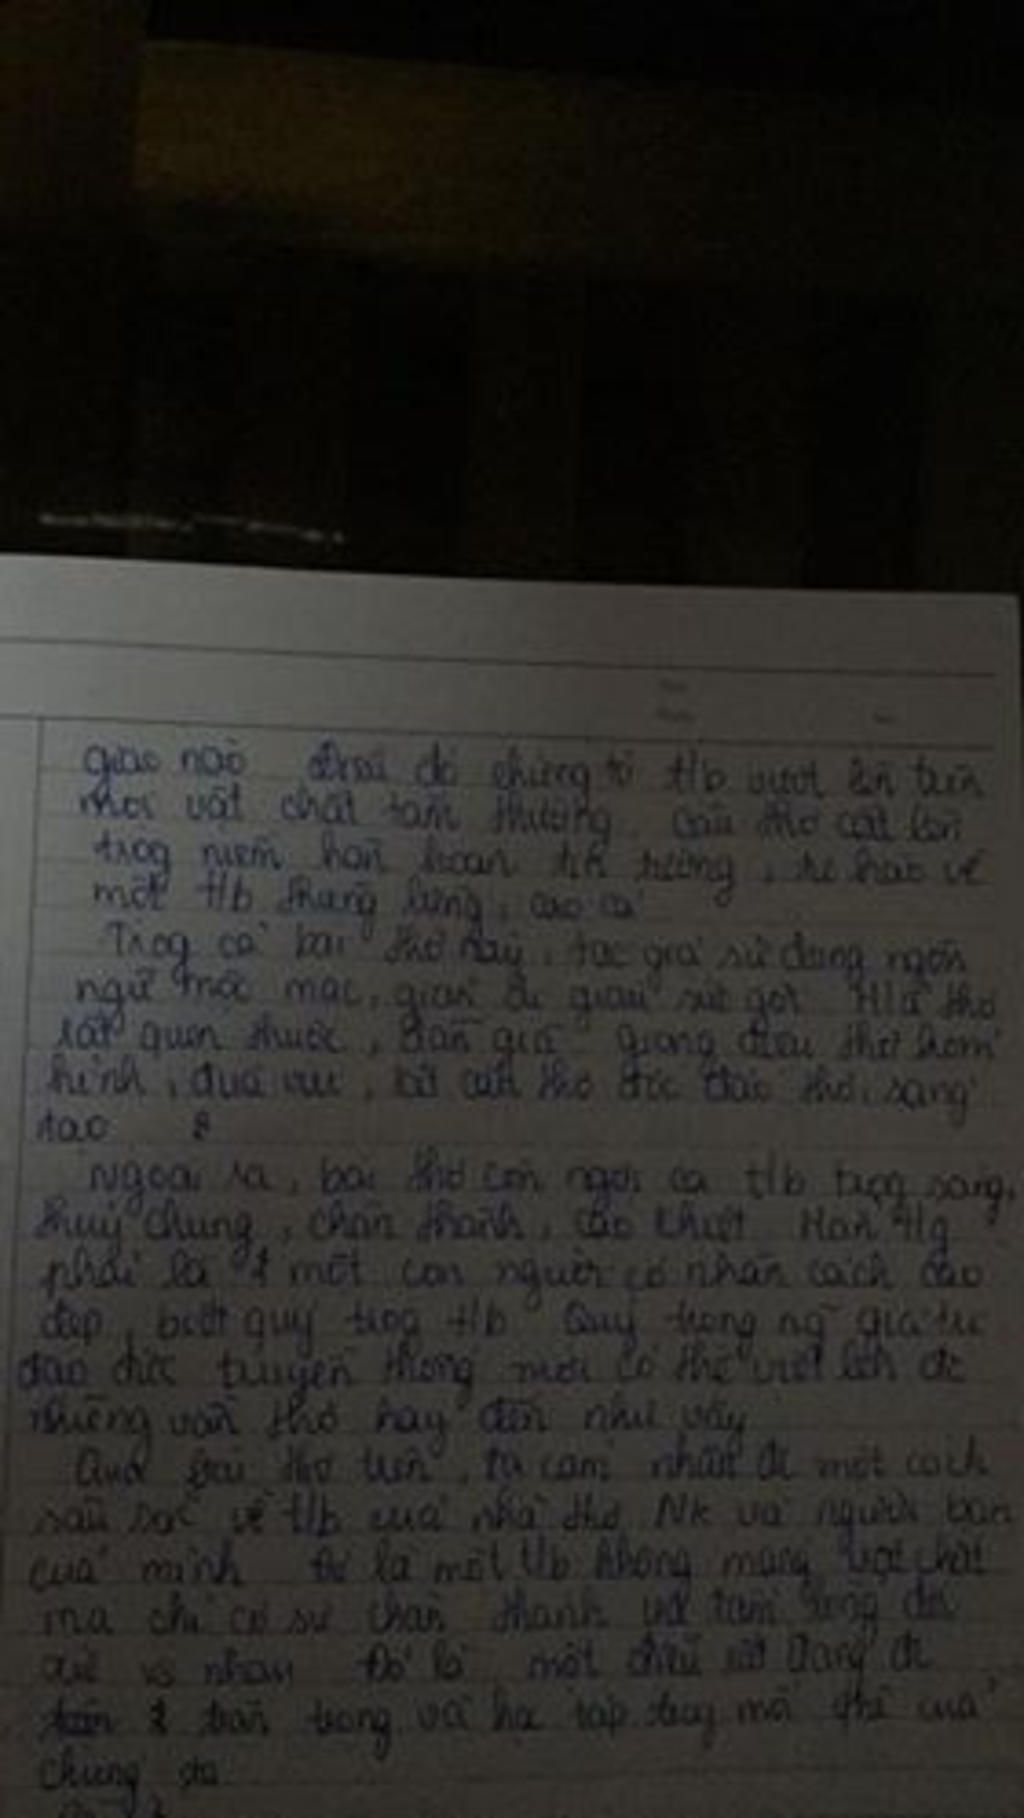 giao nào Điều đó chứng tỏ t/b vượt lên trên
mọi vật chất tầm thường. Câu thơ cất lên
trog niềm hân hoan tin tưởng, tự hào về
một t/b thủy chung, cao cả
Trog cả bài thơ này, tác giả sử dụng ngôn
ngữ mộc mạc, giản dị giàu sức gợi thơ
rất quen thuộc, dân giã giọng điệu thơ hóm
hỉnh, đùa vui, thơ độc đáo sáng
tạo
Ngoài ra, bài thơ còn ngợi ca t/b trog sáng,
thuỷ chung, chân thành, Hẳn
phải là 1 một con người có nhân cách cao
đẹp, biết quý trọg t/b Quý trọng ng~ giá trị
đạo đức truyền thống mới có thể viết lên đc
những vần thơ hay đến như vậy
Qua bài thơ trên, ta cảm nhận đc một cách
sâu sắc về t/b của nhà thơ NK và người bạn
của mình Đó là một t/b không màng vật chất
mà chỉ có sự chân thành và tấm lòng
nhau Đó là một điều rất đáng đc
trân trọng và học tập của
chúng ta